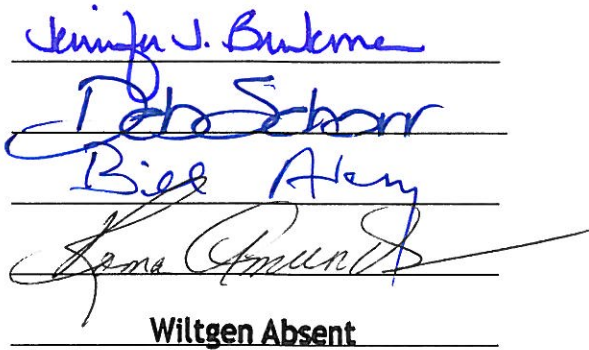 Jennifer J. Brinkman
Deb Schorr
Bill Avery
Roma Amundson
Wiltgen Absent